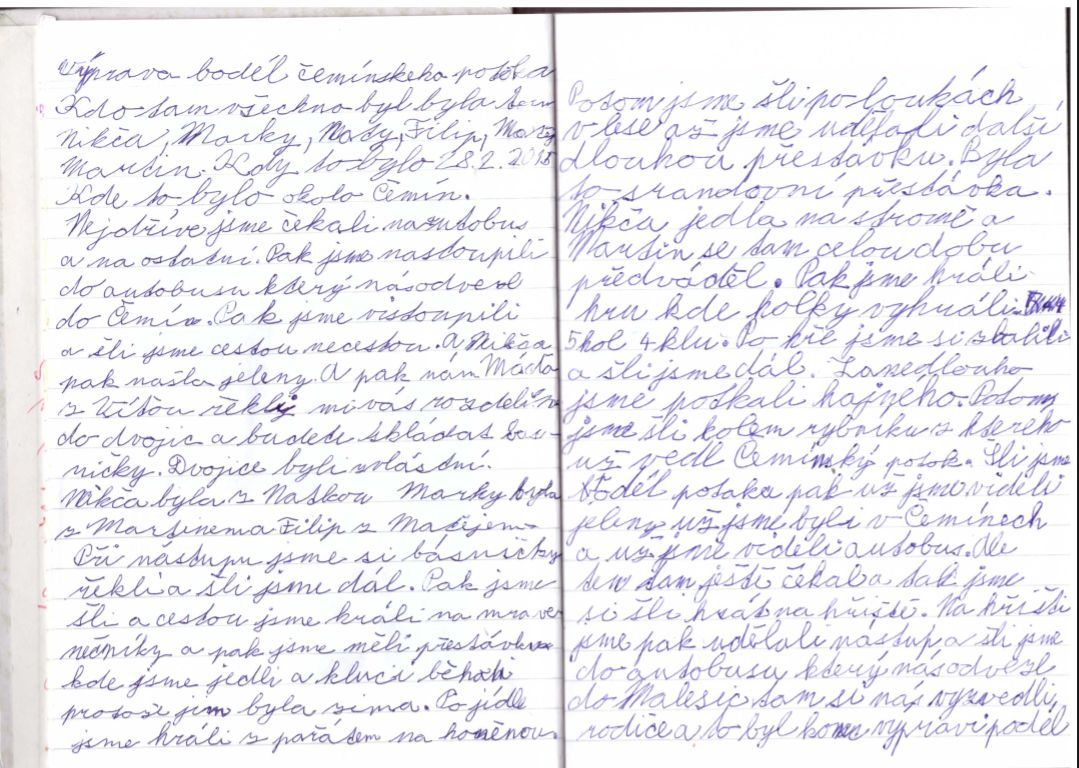 Výprava boděl čemínskeho potoka
Kdo tam všechno byl byla tam
Nikča, Marky, Naty, Filip, Matěj
Martin. Kdy to bylo 28.2. 2015
Kde to bylo okolo Čemín.
Nejdříve jsme čekali na autobus
a na ostatní. Pak jsme nastoupili
do autobusu který nás odvezl
do Čemín. Pak jsme vistoupili
a šli jsme cestou necestou. A Nikča
pak našla jeleny. A pak nám Máťa
z Víťou řekli mi vás rozdelíme
do dvojic a budete skládat bas-
ničky. Dvojice byli zvláštní.
Nikča byla z Naťkou Marky byla
z Martinem a Filip z Matějem
Při nástupu jsme si básničky
řekli a šli jsme dál. Pak jsme
šli a cestou jsme hráli na mrave
nečníky a pak jsme měli přestávku
kde jsme jedli a kluci běhali
protože jim byla zima. Po jídle
jsme hráli z pařátem na honěnou.
Potom jsme šli po loukách
v lese až jsme udělali další
dlouhou přestávku. Byla
to srandovní přestávka.
Nikča jedla na stromě a
Martin se tam celou dobu
předváděl. Pak jsme hráli
hru kde holky vyhráli
5 hol 4 klu. Po hře jsme si zbalili
a šli jsme dál. Zanedlouho
jsme potkali hajného. Potom
jsme šli kolem rybníku z ktereho
už vedl Čemínský potok. Šli jsme
boděl potoka pak už jsme viděli
jeleny už jsme byli v Čemínech
a už jsme viděli autobus. Ale
ten tam ještě čekal a tak jsme
si šli hrát na hřiště. Na hřišti
jsme pak udělali nástup, a šli jsme
do autobusu který nás odvezl
do Malesic tam si nás vyzvedli
rodiče a to byl konec výpravi podél